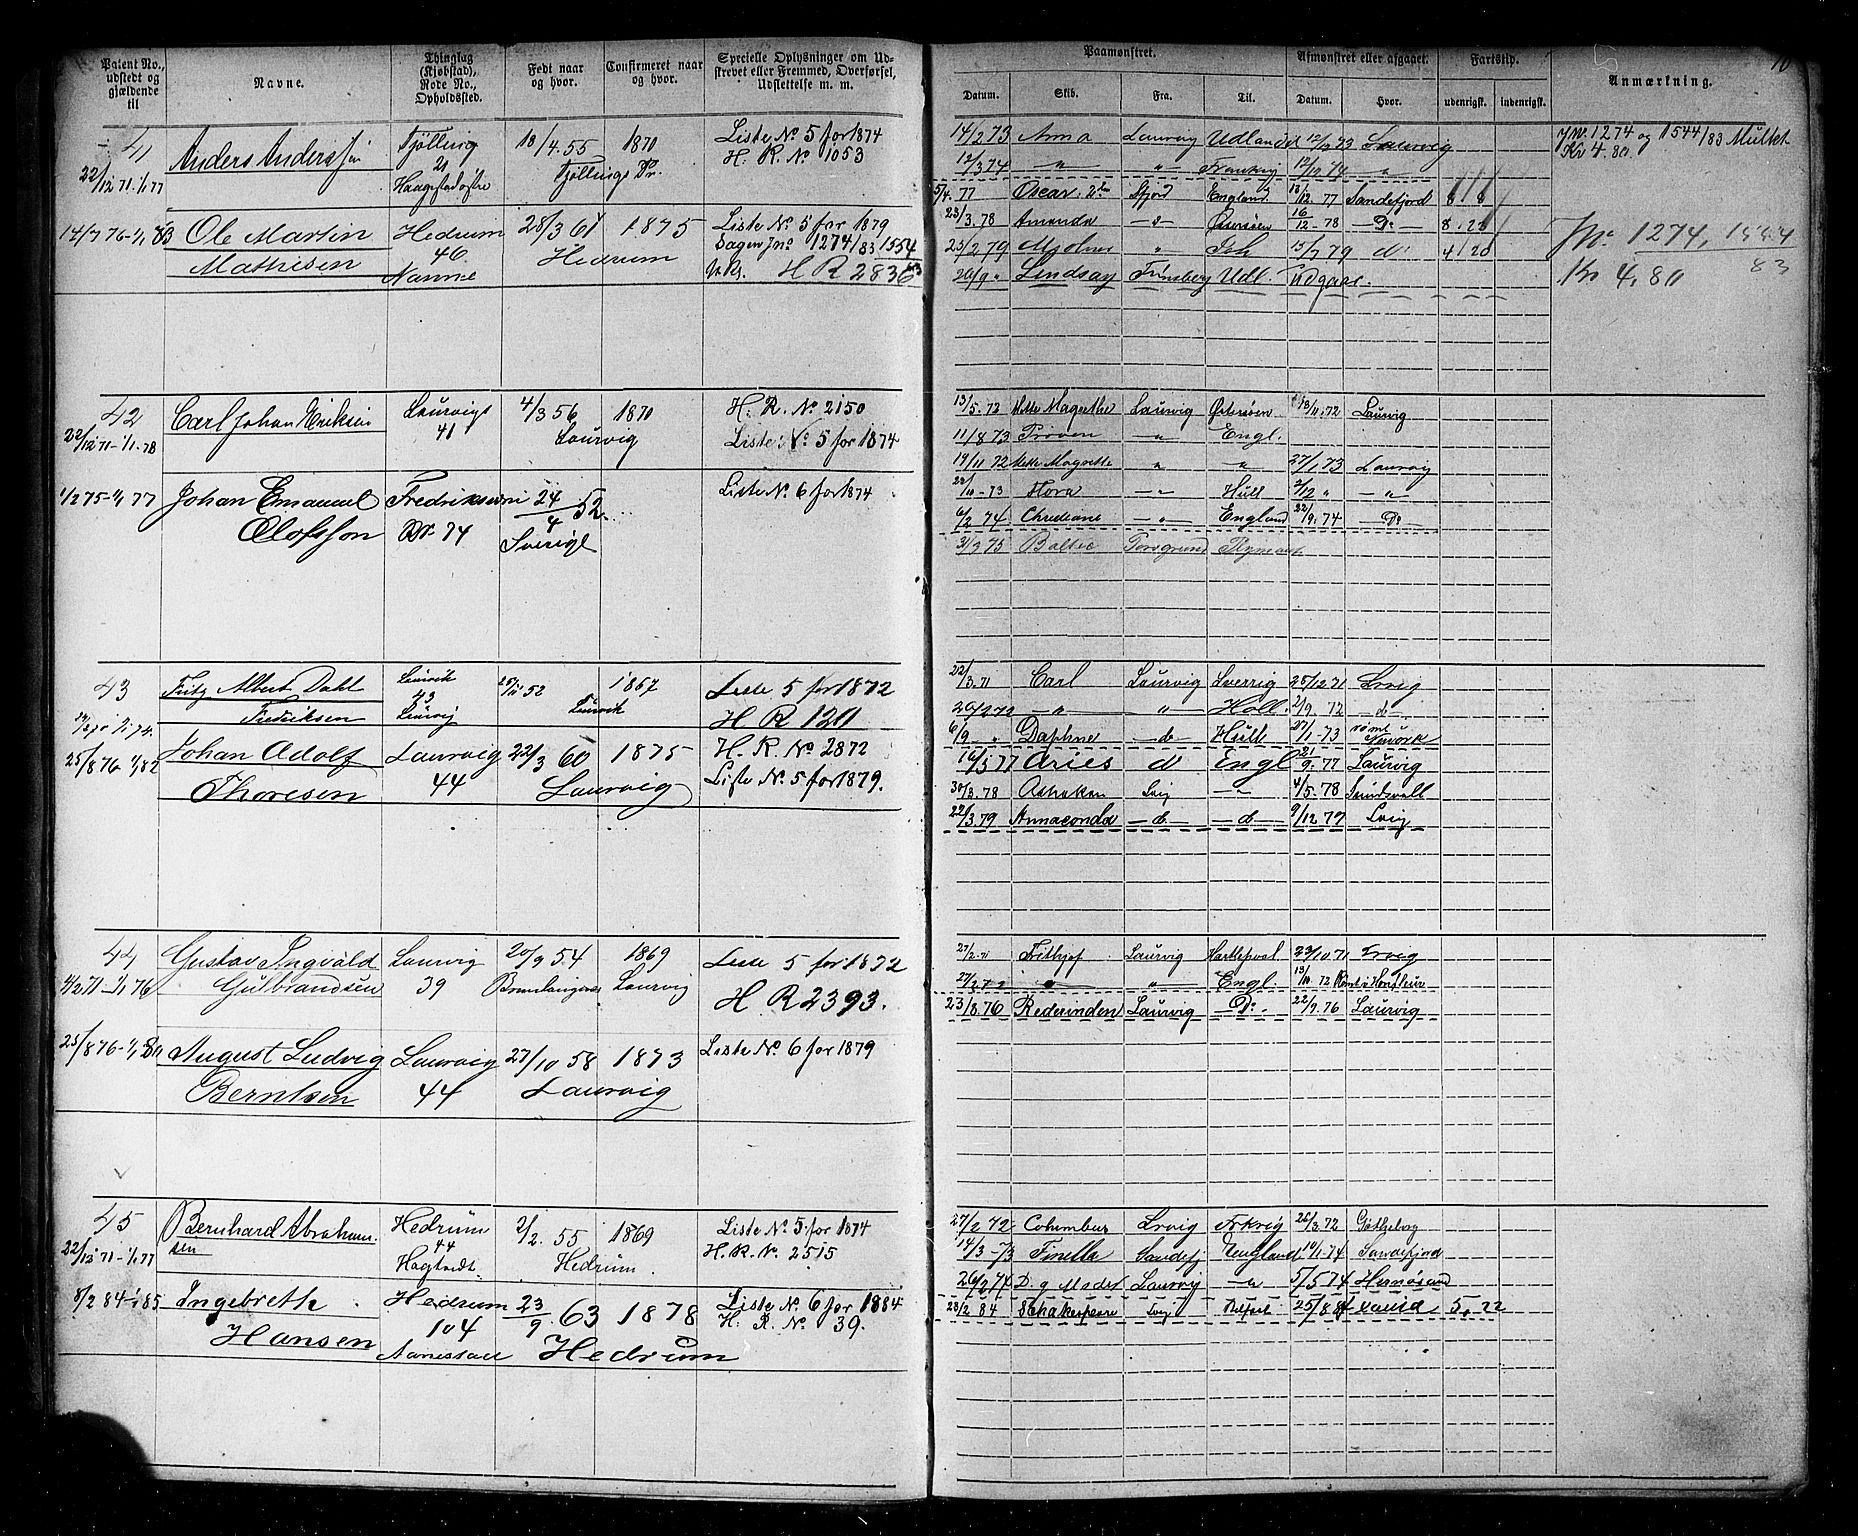 Patent No., udstedt og gjældende til
Navne.
Thinglag (Kjøbstad), Rode No., Opholdssted.
Født naar og hvor.
Confirmeret naar og hvor.
Specielle Oplysninger om Udstrevet eller Fremmed, Overførsel, Udslettelse m. m.
Paamønstret.
Afmønstret eller afgaaet.
Fartstip.
Anmærkning.
Datum.
Skib.
Fra.
Til.
Datum.
Hvor.
udenrigsk.
indenrigsk.
41
22/12 71-1/1 77
Anders Anderssen
Tjølling
21
18/4.55
Tjøllings Pr.
1870
Liste No. 5 for 1874
H. R. No 1053
14/7 76-1/1 83
Ole Martin
Mathisen
Hedrum
46
Nanme
28/3 61
Hedrum
1875
Liste No. 5 for 1879
Sagen Jno. 1274/83 1554
H R 2836
14/2 73 Anna Laurvig Udlandet 12/12 73 Laurvig
12/3 74 " " Frankrig 12/10 74 "
5/4. 77 Oscar 2den Sfjord England 13/12 77 Sandefjord 8 8
23/3. 78 Amanda -"- Østersøen 16/12. 78 Do 8. 28
25/2 79 Mjølner " 15/7 79 do 4 20
20/9 " Lindsay Tønsberg Udl. Udgaar.
JN. 1274 og 1544/83 Mulkt
Kr 4.80.
Jno. 1274, 1554
83
Kr 4,80
42
22/12 71-1/1 78
Carl Johan Eriksen
Laurvigs
41
4/3 56
Laurvig
1870
H. R. No 2150
Liste: No 5 for 1874
1/2 75-1/1 77
Johan Emanuel
Olofsson
Fredriksværn
No. 74
24/4 52.
Sverige
Liste No. 6 for 1874
13/5. 72 Mette Magrethe Laurvig Østersøen 13/11. 72 Laurvig
11/8 73 Prøven " Engl.
19/11 72 Mette Magrette " " 27/1 73 Laurvig
22/10-73 Flora -"- Hull 2/12 " -"-
6/2 74 Christiane -"- England 22/9. 74 Do
31/3 75 Baltic Porsgrund
43
Fritz Albert Dahl
Fredriksen
Laurvik
43
Laurvig
52
Laurvik
1867
Liste 5 for 1872
H R 120
25/8 76-1/1 82
Johan Adolf
Thoresen
Laurvig
44
22/3 60
Laurvig
1875
H. R. No 2872
Liste No. 5 for 1879.
22/3. 71 Carl Laurvig Sverrig 25/12 71 Lrvig
20/2 72 -"- " Holl. 2/9. 72 -d-
6/9 " Daphne -do Hull 27/1 73 rømt Newyork
16/5 77 Aries do Engl 21/9. 77 Laurvig
30/3. 78 Lvig -"- 4/5. 78 Sundsvall
22/3. 79 Annaconda -d- -d- 9/12 79 Lvig
44
4/2 71-1/1 76
Gustav Ingvald
Gulbrandsen
Laurvig
39
20/9 54
1869
Laurvig
Liste 5 for 1872
H R 2393.
25/8 76-1/1 80
August Ludvig
Berntsen
Laurvig
44
27/10 58
Laurvig
1873
Liste No. 6 for 1879
27/2. 71 Frithjof Laurvig Hartlepool 23/10 71 Lrvig
27/2 72 " " Engl. 13/10 72
23/8. 76 Rederinden Laurvig Do. 22/9. 76 Laurvig
45
22/12 71-1/1 77
Bernhard Abrahamsen
Hedrum
44
Hagtvedt
2/2. 55
Hedrum
1869
Liste No 5 for 1874
H. R. No. 2515
8/2 84-1/1 85
Ingebreth
Hansen
Hedrum
104
23/9. 63
Hedrum
1878
Liste No. 6 for 1884
H. R. No. 39.
27/2 72 Columbus Lrvig Frkrig 26/3. 72 Gøtheborg
14/3-73 Finella Sandefj England 10/1-74 Sandefjord
26/2 74 Laurvig -"- 5/5 74 Hernøsand
23/2 84 Schakespeare Lvig Belfast 25/8 84 5. 22